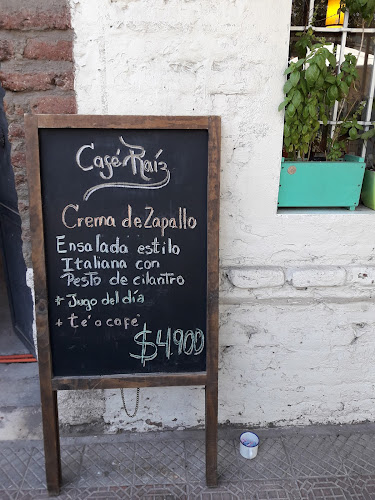 Café Raíz
Crema de Zapallo
Ensalada estilo
Italiana con
Pesto de cilantro
+ Jugo del día
+ té o café
$4900